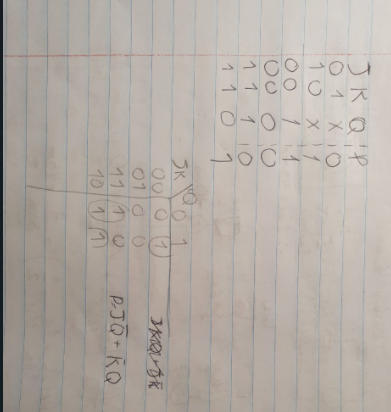 J K Q P
0 1 X 0
1 0 X 1
0 0 1 1
0 0 0 0
1 1 1 0
1 1 0 1
JK\Q 0 1
00 0 1
01 0 0
11 1 0
10 1 1
P=JQ̄ + K̄Q